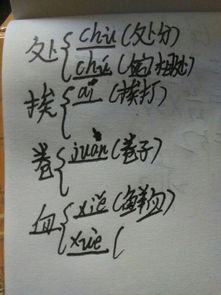 处 { chǔ (处分)
chù (
挨 { ái (挨打)
卷 { juàn (卷子)
血 { xiě (鲜血)
xuè (